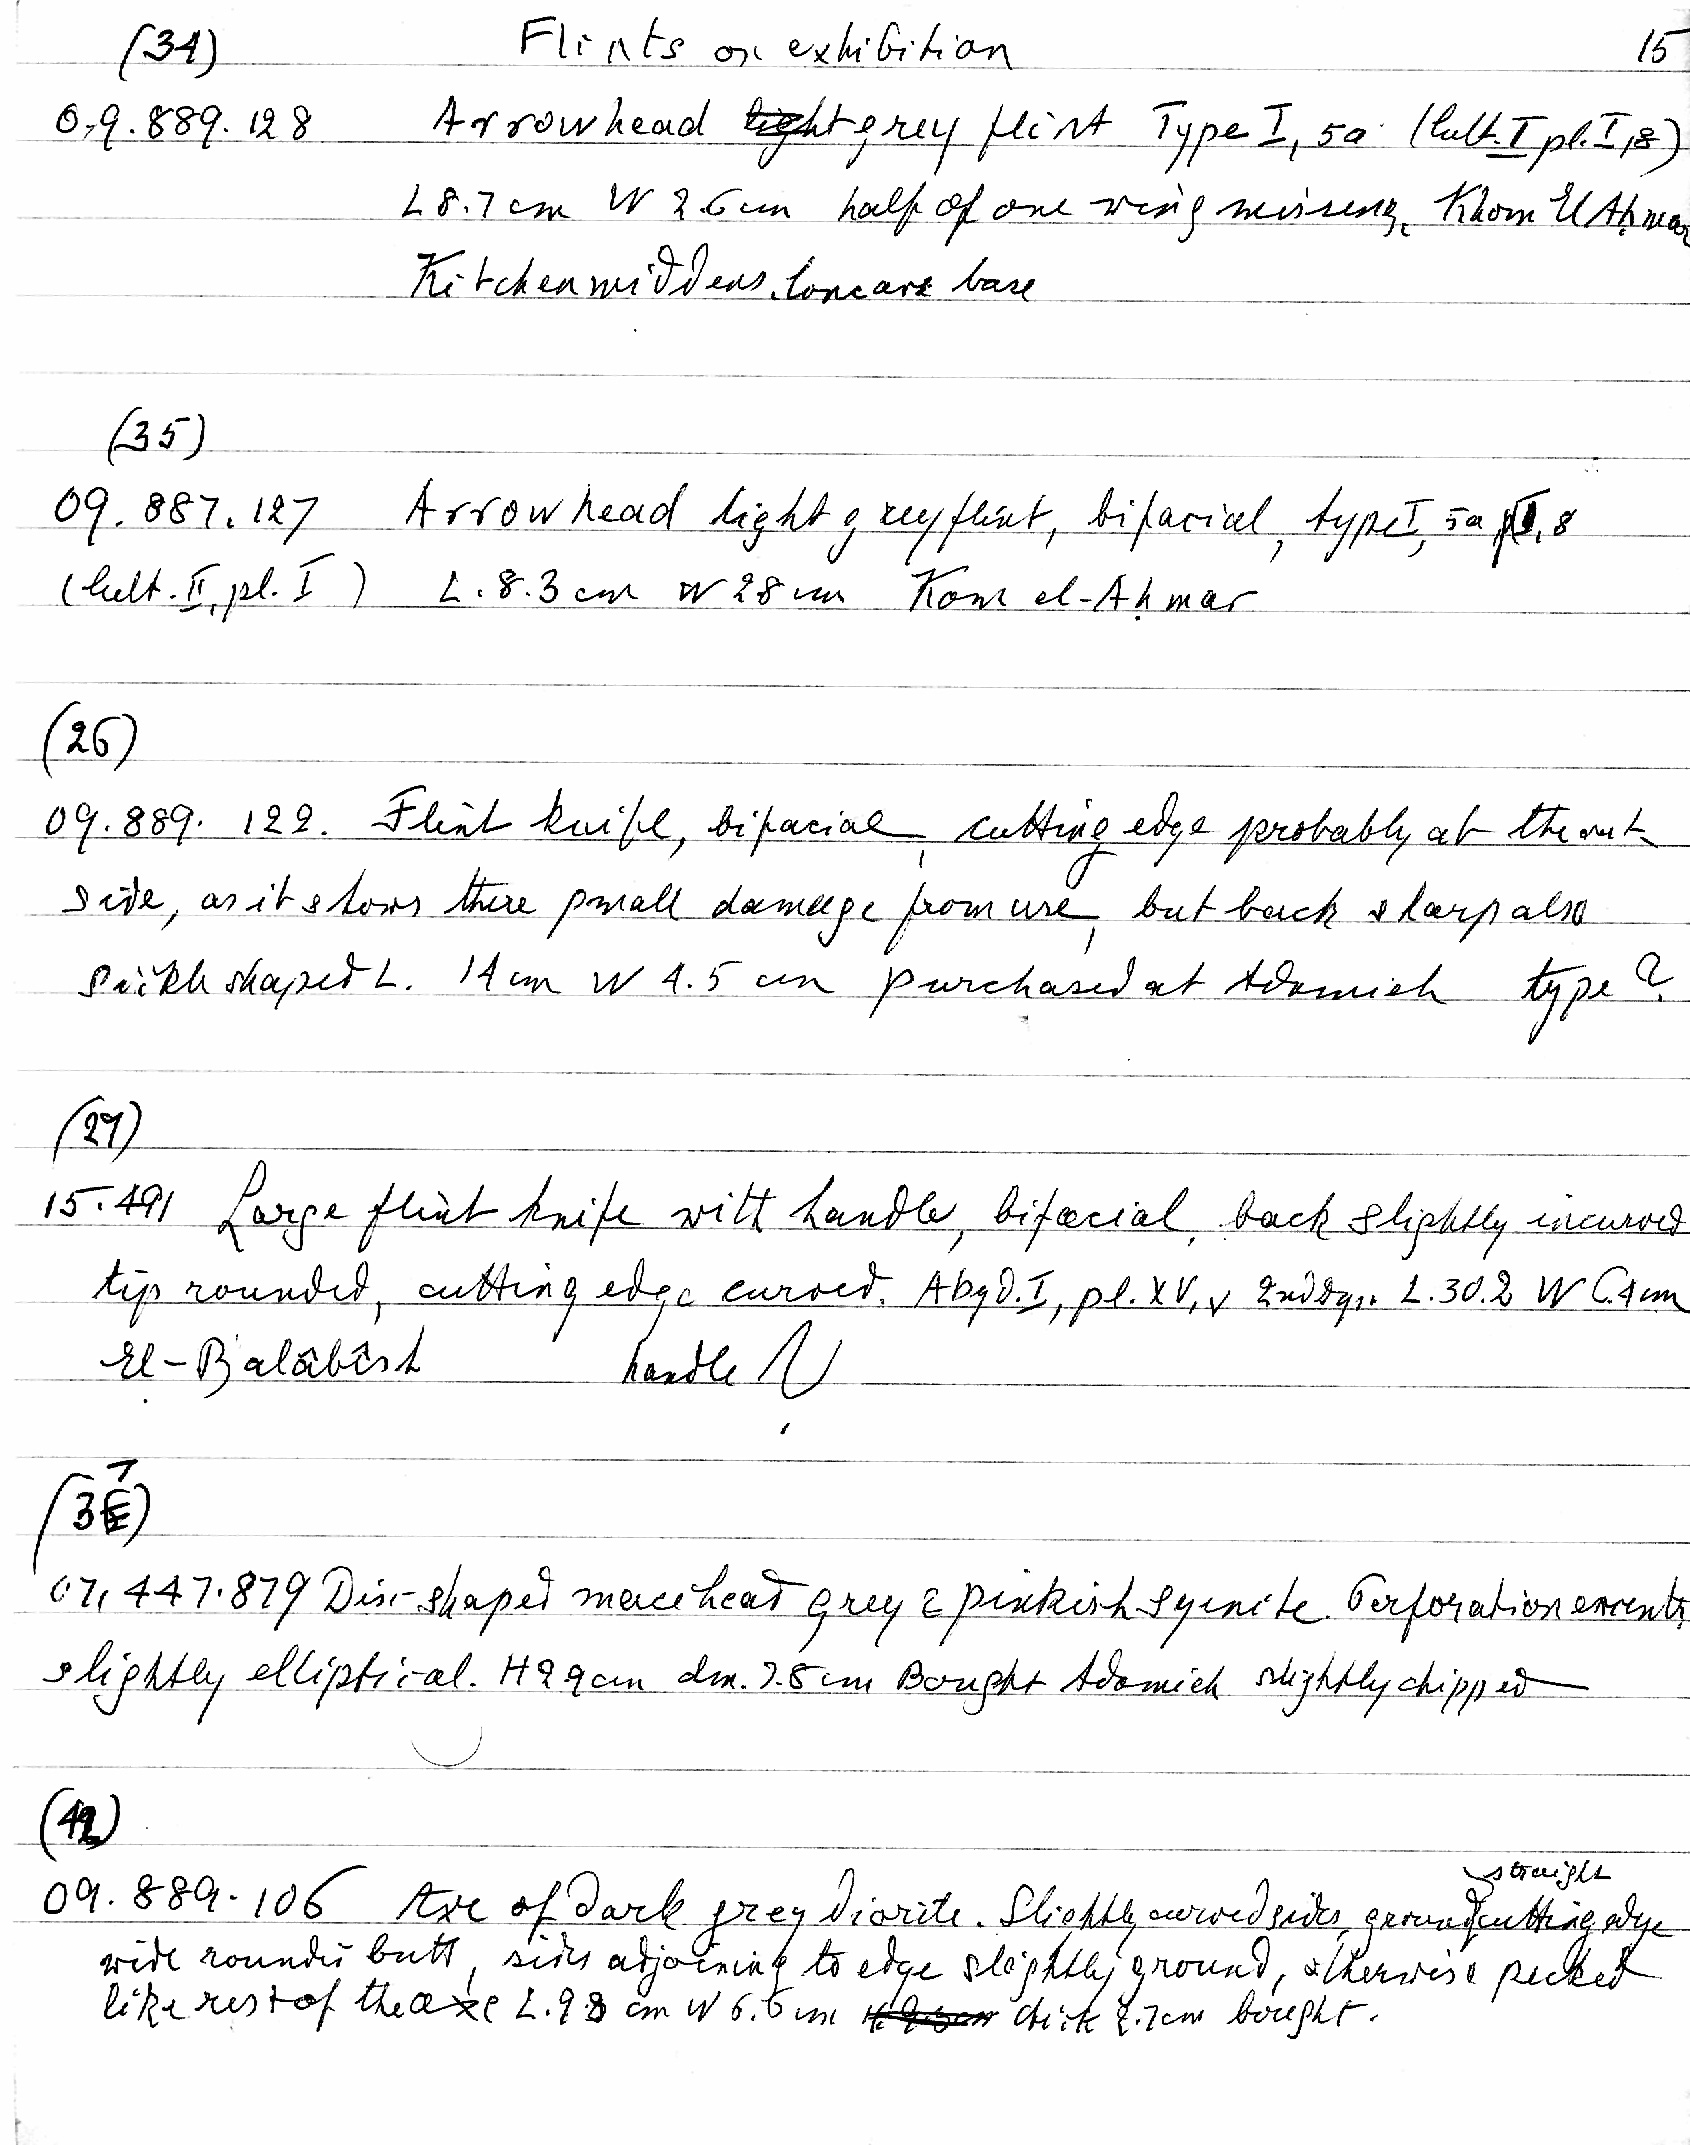 (34) Flints on exhibition 15
09.889.128 Arrowhead light grey flint Type I, 5a (Cult. II pl. I, 8)
L 8.7 cm W 2.6 cm half of one wing missing, Khom El Aḥmar
Kitchenmiddens. Concave base
(35)
09.887.127 Arrowhead light grey flint, bifacial, type I, 5a, 8
(Cult. II, pl. I) L. 8.3 cm W 28 cm Kom el-Aḥmar
(26)
09.889.122. Flint knife, bifacial, cutting edge probably at the out-
side, as it shows there small damage from use, but back sharp also
sickle shaped L. 14 cm W 4.5 cm purchased at Adamieh type?
(27)
15.491 Large flint knife with handle, bifacial, back slightly incurved
tip rounded, cutting edge curved. Abyd. I, pl. XV, v 2nd dyn. L. 30.2 W 6.4 cm
El-Balâbîsh handle
(37)
07.447.879 Disc-shaped macehead grey & pinkish syenite. Perforation
slightly elliptical. H 2.9 cm dm. 7.8 cm Bought Adamieh slightly chipped
(42)
straight
09.889.106 Axe of dark grey diorite. Slightly curved sides, ground cutting edge
wide rounded butt, sides adjoining to edge slightly ground, otherwise pecked
like rest of the axe L. 9.8 cm W 6.6 cm thick 2.7cm bought.